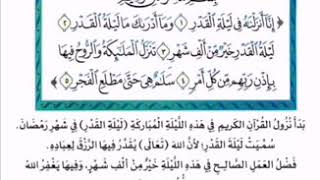 إِنَّا أَنزَلْنَٰهُ فِي لَيْلَةِ ٱلْقَدْرِ ١ وَمَآ أَدْرَىٰكَ مَا لَيْلَةُ ٱلْقَدْرِ ٢
لَيْلَةُ ٱلْقَدْرِ خَيْرٌ مِّنْ أَلْفِ شَهْرٍ ٣ تَنَزَّلُ ٱلْمَلَٰٓئِكَةُ وَٱلرُّوحُ فِيهَا
بِإِذْنِ رَبِّهِم مِّن كُلِّ أَمْرٍ ٤ سَلَٰمٌ هِيَ حَتَّىٰ مَطْلَعِ ٱلْفَجْرِ ٥
بَدَأَ نُزُولُ القُرْآنِ الكَرِيمِ فِي هَذِهِ اللَّيْلَةِ المُبَارَكَةِ (لَيْلَةِ القَدْرِ) فِي شَهْرِ رَمَضَانَ.
سُمِّيَتْ لَيْلَةَ القَدْرِ؛ لأَنَّ اللهَ (تَعَالَى) يُقَدِّرُ فِيهَا الرِّزْقَ لِعِبَادِهِ.
فَضْلُ العَمَلِ الصَّالِحِ فِي هَذِهِ اللَّيْلَةِ خَيْرٌ مِنْ أَلْفِ شَهْرٍ، وَفِيهَا يَغْفِرُ اللهُ